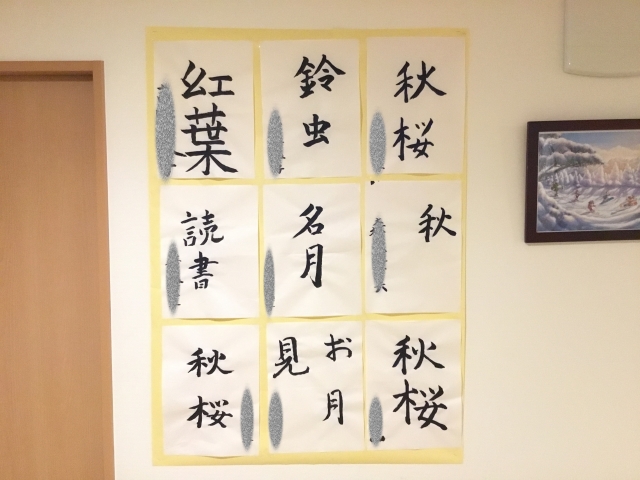 秋桜
鈴虫
紅葉
秋
名月
読書
秋桜
お月
見
秋桜